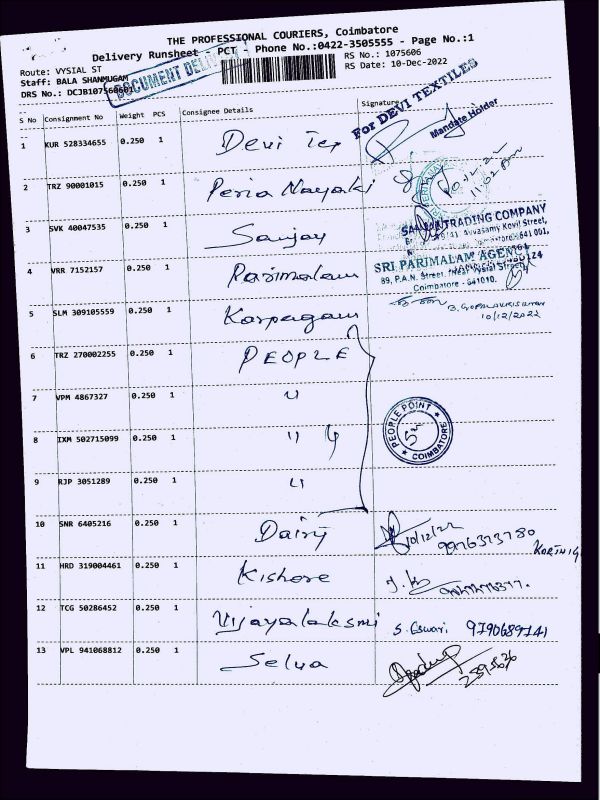 THE PROFESSIONAL COURIERS, Coimbatore
Delivery Runsheet - PCT - Phone No.:0422-3505555 - Page No.:1
Route: VYSIAL ST
RS No.: 1075606
Staff: BALA SHANMUGAM
RS Date: 10-Dec-2022
DRS No.: DCJB107560601
DOCUMENT DELIVERY
S No Consignment No Weight PCS Consignee Details Signature
For DEVI TEXTILES
Mandate Holder
1 KUR 528334655 0.250 1 Devi Tex
2 TRZ 90001015 0.250 1 Peria Nayaki
10.12.22
11:02 am
3 SVK 40047535 0.250 1 Sanjay
SAJJAN TRADING COMPANY
Avvasamy Kovil Street,
4 VRR 7152157 0.250 1 Parimalam
SRI PARIMALAM AGENCY
89, P.A.N. Street, Near Vysial Street,
Coimbatore - 641010.
5 SLM 309105559 0.250 1 Karpagam
B. GOPALAKRISHNAN
10/12/2022
6 TRZ 270002255 0.250 1 PEOPLE
7 VPM 4867327 0.250 1 "
8 IXM 502715099 0.250 1 " 4
PEOPLE POINT
COIMBATORE
9 RJP 3051289 0.250 1 "
10 SNR 6405216 0.250 1 Dairy 10/12/22
9976373780
11 HRD 319004461 0.250 1 Kishore
12 TCG 50286452 0.250 1 Vijayalaksmi S. Eswari 9790689141
13 VPL 941068812 0.250 1 Selva